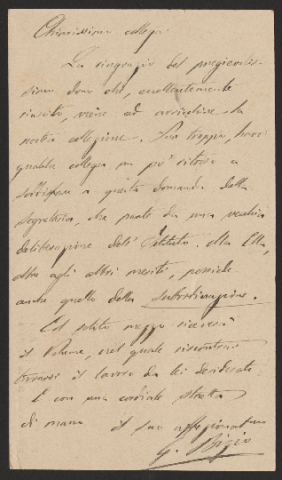 Chiarissimo collega
La ringrazio del pregevolis-
simo dono che, cortesemente
viene ad arricchire la
nostra collezione. Pur troppo, havvi
qualche collega un po' ritroso a
soddisfare a questa domanda della
segreteria, che parte da una vecchia
deliberazione dell'Istituto. Ma Ella,
oltre agli altri meriti, possiede
anche quello della subordinazione.
Col solito mezzo riceverà
il volume, nel quale
trovarsi il lavoro da lei desiderato.
E con una cordiale stretta
di mano il suo affezionatissimo
G. Bizio